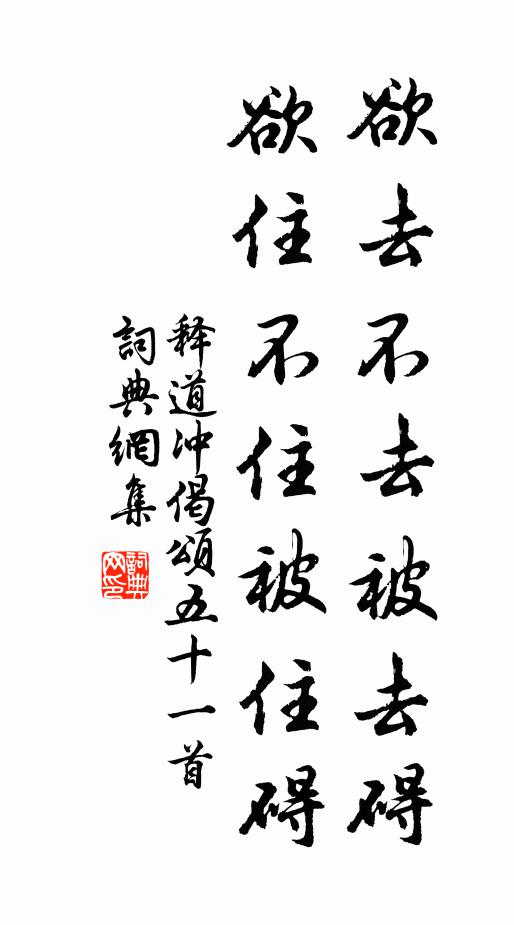 欲去不去被去碍
欲住不住被住碍
释道冲偈頌五十一首
詞典網集
詞典網印